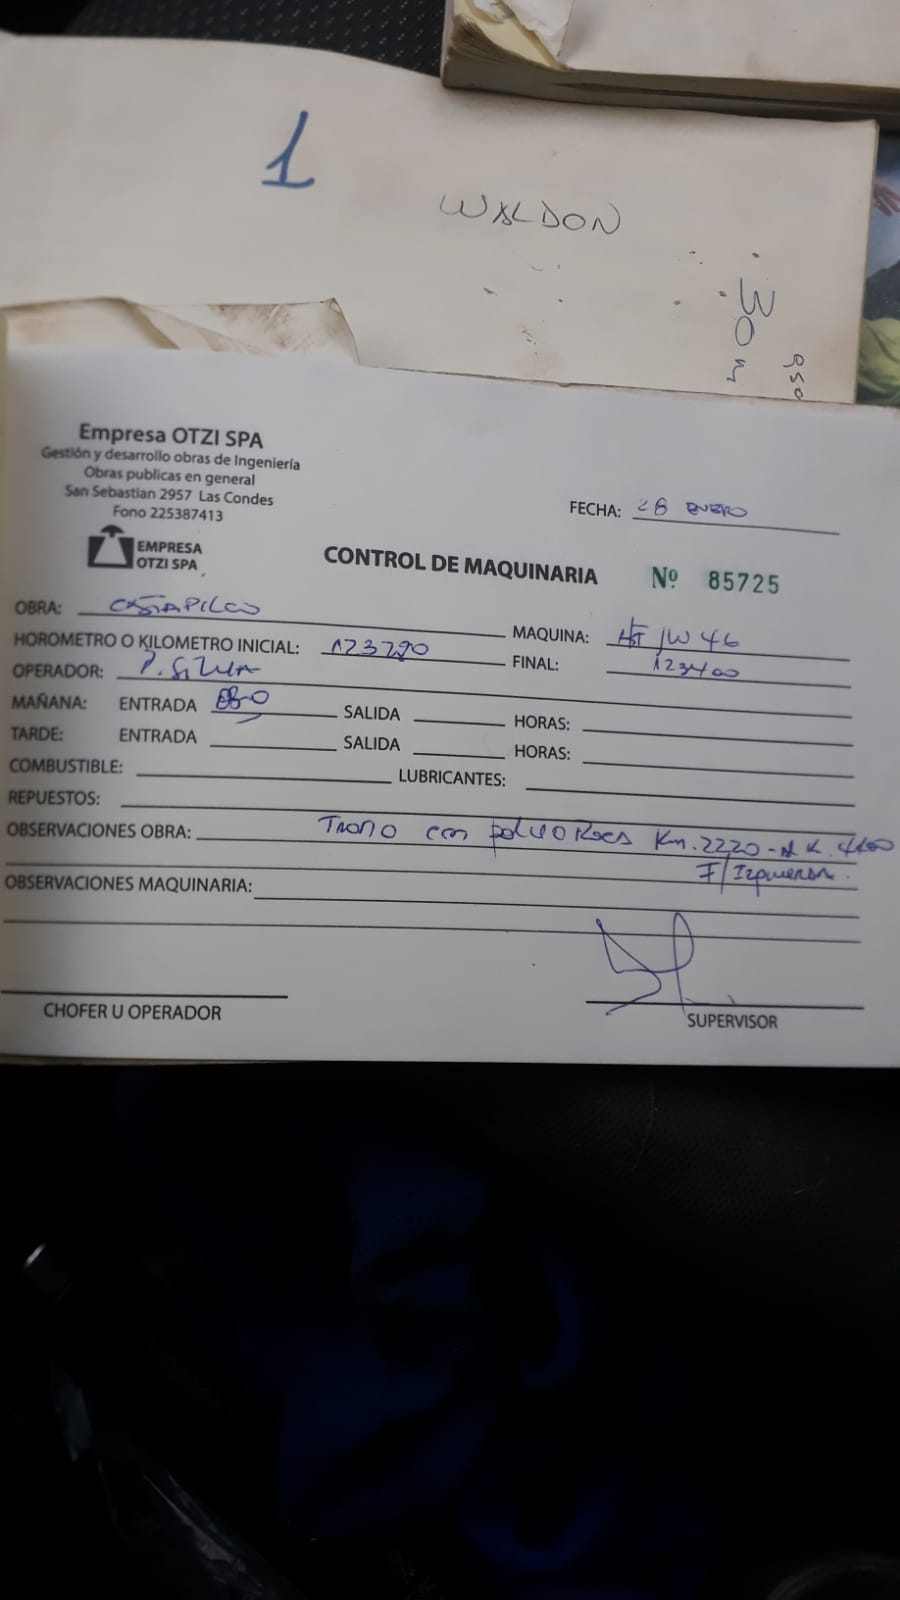 1
WALDON
30
050
Empresa OTZI SPA
Gestión y desarrollo obras de Ingeniería
Obras publicas en general
San Sebastian 2957 Las Condes
Fono 225387413
EMPRESA
OTZI SPA
FECHA: 28 ENERO
CONTROL DE MAQUINARIA Nº 85725
OBRA:
MAQUINA: JW 46
HOROMETRO O KILOMETRO INICIAL: 123290
FINAL: 123400
OPERADOR: P. SILVA
MAÑANA: ENTRADA SALIDA HORAS:
TARDE: ENTRADA SALIDA HORAS:
COMBUSTIBLE: LUBRICANTES:
REPUESTOS:
OBSERVACIONES OBRA: con Km. 2220 - K.
F/Izquierda.
OBSERVACIONES MAQUINARIA:
CHOFER U OPERADOR
SUPERVISOR